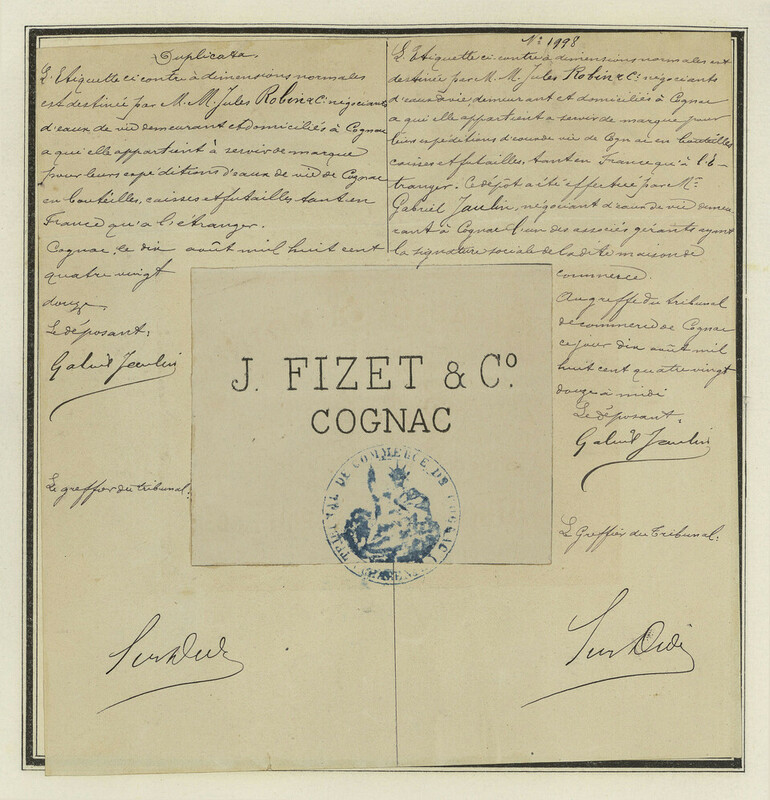 Duplicata
L'Etiquette ci contre à dimensions normales
est destinée par M. M. Jules Robin & Cie négociants
d'eaux de vie demeurant et domiciliés à Cognac
a qui elle appartient à servir de marque
pour leurs expéditions d'eaux de vie de Cognac
en bouteilles, caisses et futailles, tant en
France qu'a l'étranger.
Cognac, le dix août mil huit cent
quatre vingt
douze,
Le déposant:
Gabriel Jaulin
Le greffier du tribunal:
No 1998
L'Etiquette ci-contre à dimensions normales est
destinée par M. M. Jules Robin & Cie négociants
d'eaux de vie, demeurant et domiciliés à Cognac
a qui elle appartient à servir de marque pour
leurs expéditions d'eaux de vie de Cognac en bouteilles
caisses et futailles, tant en France qu'à l'é-
tranger. Ce dépôt a été effectué par Mr
Gabriel Jaulin, négociant d'eaux de vie demeu-
rant à Cognac l'un des associés gérants ayant
la signature sociale de la dite maison de
commerce.
Au greffe du tribunal
de commerce de Cognac
ce jour dix août mil
huit cent quatre vingt
douze à midi
Le déposant
Gabriel Jaulin
Le Greffier du Tribunal:
J. FIZET & Co.
COGNAC
TRIBUNAL DE COMMERCE DE COGNAC